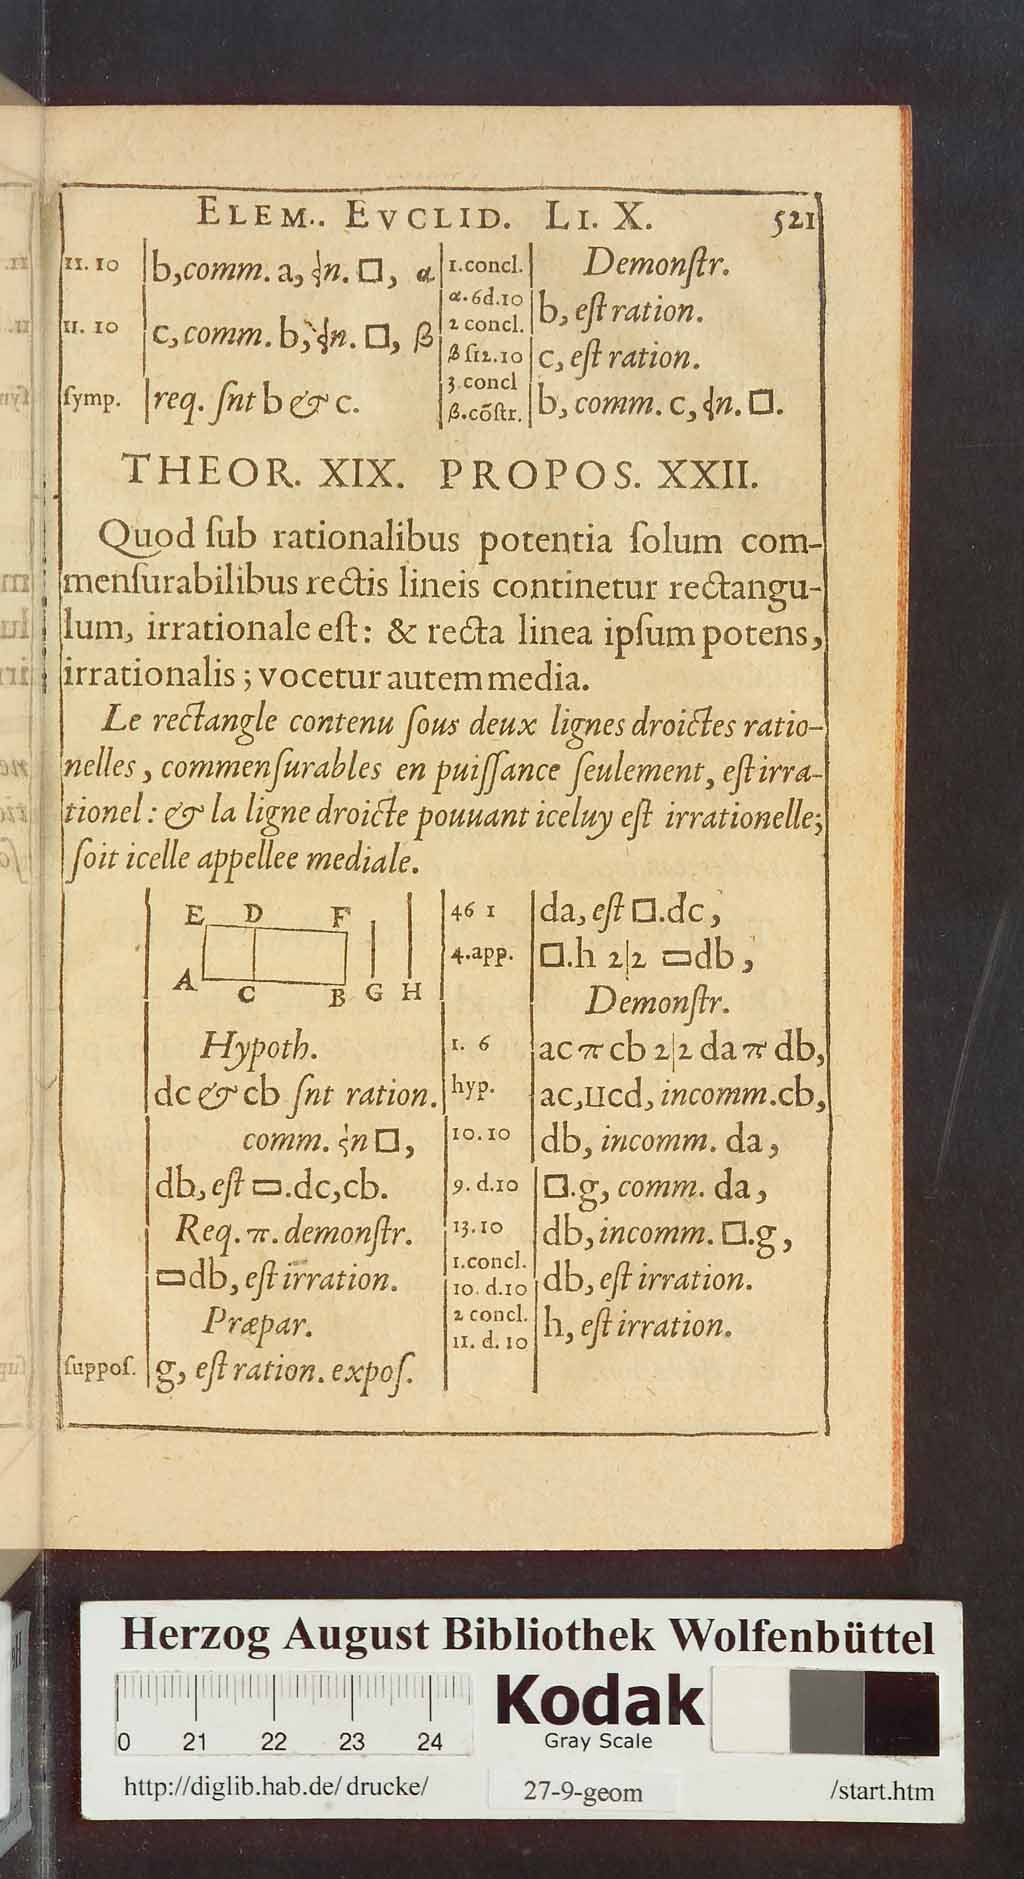 ELEM.. EVCLID. LI. X. 521
11. 10 b, comm. a, ʒn. □, α
11. 10 c, comm. b, ʒn. □, β
ſymp. req. ſnt b & c.
1.concl. Demonſtr.
α.6d.10
2 concl. b, eſt ration.
β ſ12.10 c, eſt ration.
3.concl
β.cõſtr. b, comm. c, ʒn. □.
THEOR. XIX. PROPOS. XXII.
Quod ſub rationalibus potentia ſolum com-
menſurabilibus rectis lineis continetur rectangu-
lum, irrationale eſt: & recta linea ipſum potens,
irrationalis; vocetur autem media.
Le rectangle contenu ſous deux lignes droictes ratio-
nelles, commenſurables en puiſſance ſeulement, eſt irra-
tionel: & la ligne droicte pouuant iceluy eſt irrationelle;
ſoit icelle appellee mediale.
E D F
A C B G H
Hypoth.
dc & cb ſnt ration.
comm. ʒn □,
db, eſt ▭.dc, cb.
Req. π. demonſtr.
▭db, eſt irration.
Præpar.
ſuppoſ. g, eſt ration. expoſ.
46 1 da, eſt □.dc,
4.app. □.h 2|2 ▭db,
Demonſtr.
1. 6 ac π cb 2|2 da π db,
hyp. ac, ıɪcd, incomm. cb,
10.10 db, incomm. da,
9. d.10 □.g, comm. da,
13.10 db, incomm. □.g,
1.concl.
10. d.10 db, eſt irration.
2 concl.
11. d. 10 h, eſt irration.
Herzog August Bibliothek Wolfenbüttel
0 21 22 23 24
Kodak
Gray Scale
http://diglib.hab.de/ drucke/ 27-9-geom /start.htm